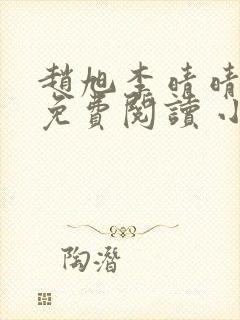 趙旭李晴晴
免費閱讀小
陶潛